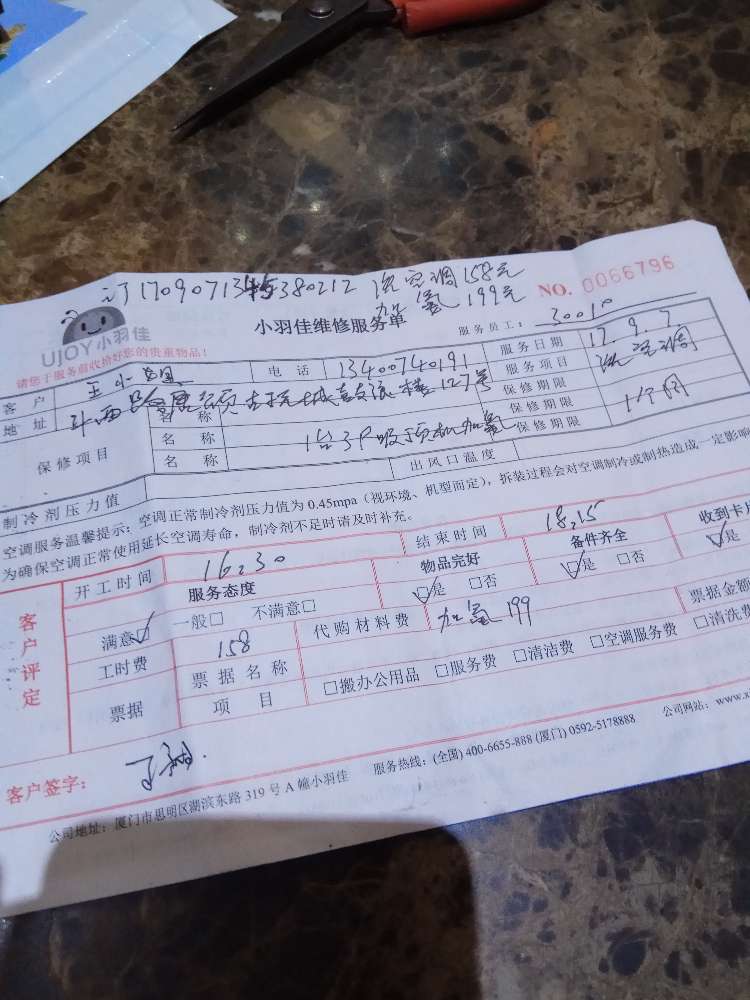 洗空调158元
加氟199元
NO. 0066796
UJOY小羽佳
小羽佳维修服务单
服务员工:
请您于服务前收拾好您的贵重物品!
客户 王小 电话 13400740191 服务日期 17.9.7
地址 127号 服务项目 洗空调
保修项目
名称 保修期限
名称 1台3P吸顶机加氟 保修期限 1个月
名称 保修期限
制冷剂压力值 出风口温度
空调服务温馨提示:空调正常制冷剂压力值为 0.45mpa(视环境、机型而定),拆装过程会对空调制冷或制热造成一定影响
为确保空调正常使用延长空调寿命,制冷剂不足时请及时补充。
客户评定
开工时间 16.30 结束时间 18.15
服务态度 物品完好 备件齐全 收到卡片
满意☑ 一般□ 不满意□ ☑是 □否 ☑是 □否 ☑是
工时费 158 代购材料费 加氟199
票据 票据名称 票据金额
项目 □搬办公用品 □服务费 □清洁费 □空调服务费 □清洗费
客户签字:
公司地址:厦门市思明区湖滨东路 319 号 A 幢小羽佳 服务热线:(全国) 400-6655-888 (厦门) 0592-5178888 公司网站:www.x